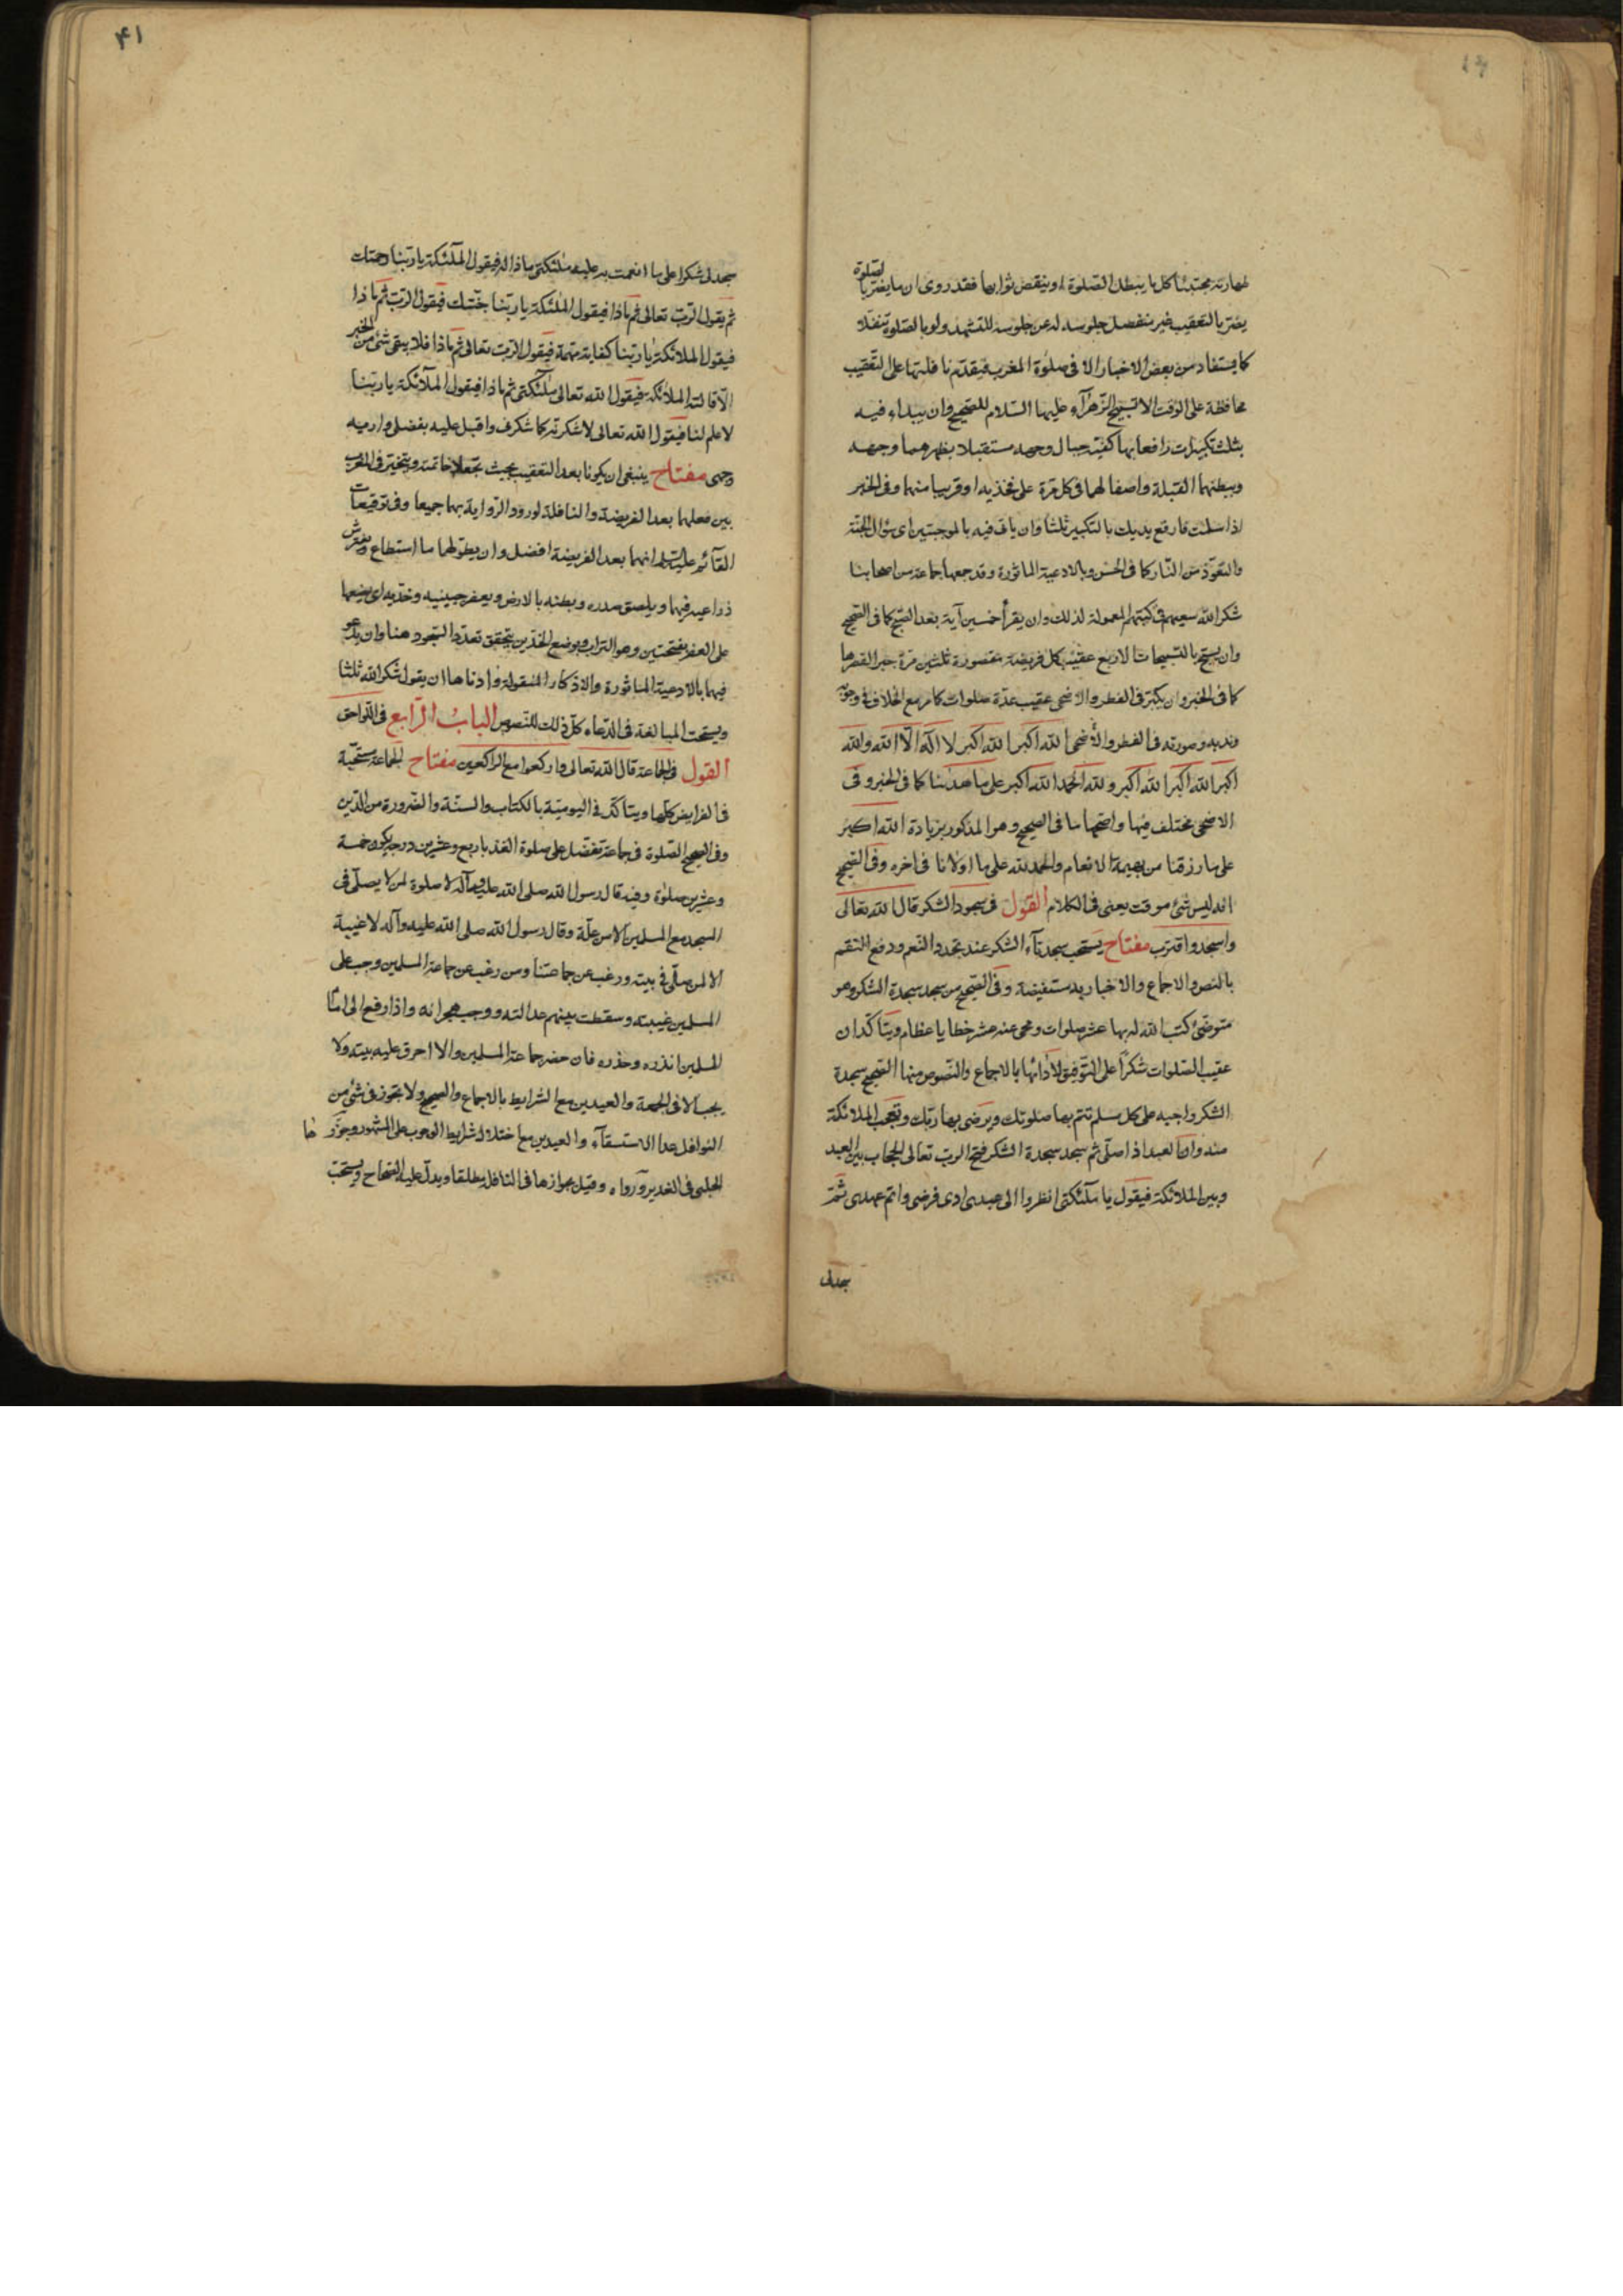 طهارته مجتنبا كل ما يبطل الصلوة او ينقص ثوابها فقد روى ان ما يضر بالصلوة
يضر بالتعقيب غير منفصل جلوسه له عن جلوسه للتشهد ولو بالصلوة تنفلا
كما يستفاد من بعض الاخبار الا فى صلوة المغرب فيقدم نافلتها على التعقيب
محافظة على الوقت الا تسبيح الزهرآء عليها السلام للصحيح وان يبداء فيه
بثلث تكبيرات رافعا بها كفيه حيال وجهه مستقبلا بظهرهما وجهه
وببطنهما القبلة واضعا لهما فى كل مرة على فخذيه او قريبا منهما وفى الخبر
اذا سلمت فارفع يديك بالتكبير ثلثا وان ياتى فيه بالموجبتين اى سؤال الجنة
والتعوذ من النار كما فى الحسن وبالادعية الماثورة وقد جمعها جماعة من اصحابنا
شكر الله سعيهم فى كتبهم المعمولة لذلك وان يقرأ خمسين آية بعد الصبح كما فى الصحيح
وان يسبح بالتسبيحات الاربع عقيب كل فريضة مقصورة ثلثين مرة جبرا لقصرها
كما فى الخبر وان يكبر فى الفطر والاضحى عقيب عدة صلوات كما مر مع الخلاف فى وجوبه
وندبه وصورته فى الفطر والأضحى الله اكبر الله اكبر لا اله الا الله والله
اكبر الله اكبر الله اكبر ولله الحمد الله اكبر على ما هدينا كما فى الخبر وفى
الاضحى مختلف فيها واصحها ما فى الصحيح وهو المذكور بزيادة الله اكبر
على ما رزقنا من بهيمة الانعام والحمد لله على ما اولانا فى اخره وفى الصحيح
انه ليس شئ موقت يعنى فى الكلام القول فى سجود الشكر قال الله تعالى
واسجد واقترب مفتاح يستحب سجدتآء الشكر عند تجدد النعم ودفع النقم
بالنص والاجماع والاخبار به مستفيضة وفى الصحيح من سجد سجدة الشكر وهو
متوضئ كتب الله له بها عشر صلوات ومحى عنه عشر خطايا عظام ويتأكدان
عقيب الصلوات شكرا على التوفيق لأدائها بالاجماع والنصوص منها الصحيح سجدة
الشكر واجبه على كل مسلم تتم بها صلوتك ويرضى بها ربك وتعجب الملائكة
منه وان العبد اذا صلى ثم سجد سجدة الشكر فتح الرب تعالى الحجاب بين العبد
وبين الملائكة فيقول يا ملائكتى انظروا الى عبدى ادى فرضى واتم عهدى ثم
سجد لى
۴۱
سجد لى شكرا على ما انعمت به عليه ملئكتى ماذا له فيقول الملئكة يا ربنا رحمتك
ثم يقول الرب تعالى ثم ماذا فيقول الملئكة يا ربنا جنتك فيقول الرب ثم ماذا
فيقول الملائكة يا ربنا كفاية مهمة فيقول الرب تعالى ثم ماذا فلا يبقى شئ من الخير
الا قالته الملائكة فيقول الله تعالى ملئكتى ثم ماذا فيقول الملآئكة يا ربنا
لا علم لنا فيقول الله تعالى لاشكرنه كما شكرنى واقبل عليه بفضلى واريه
وجهى مفتاح ينبغى ان يكونا بعد التعقيب بحيث تجعلا خاتمته ويتخير فى المغرب
بين فعلهما بعد الفريضة والنافلة لورود الرواية بهما جميعا وفى توقيعات
القآئم عليه السلم انهما بعد الفريضة افضل وان يطولهما ما استطاع ويفترش
ذراعيه فيهما ويلصق صدره وبطنه بالارض ويعفر جبينيه وخديه اى يضعها
على العفر بفتحتين وهو التراب وبوضع الخدين يتحقق تعدد السجود هنا وان يدعو
فيهما بالادعية الماثورة والاذكار المنقولة وادناها ان يقول شكرا لله ثلثا
ويستحب المبالغة فى الدعاء كل ذلك للنصوص الباب الرابع فى اللواحق
القول فى الجماعة قال الله تعالى واركعوا مع الراكعين مفتاح الجماعة مستحبة
فى الفرايض كلها ويتاكد فى اليومية بالكتاب والسنة والضرورة من الدين
وفى الصحيح الصلوة فى جماعة تفضل على صلوة الفذ باربع وعشرين درجة يكون خمسة
وعشرين صلوة وفيه قال رسول الله صلى الله عليه وآله لا صلوة لمن لا يصلى فى
المسجد مع المسلمين الا من علة وقال رسول الله صلى الله عليه وآله لا غيبة
الا لمن صلى فى بيته ورغب عن جماعتنا ومن رغب عن جماعة المسلمين وجب على
المسلمين غيبته وسقطت بينهم عدالته ووجب هجرانه واذا رفع الى امام
المسلمين انذره وحذره فان حضر جماعة المسلمين والا احرق عليه بيته ولا
يجب الا فى الجمعة والعيدين مع الشرايط بالاجماع والصحيح ولا تجوز فى شئ من
النوافل عدا الاستسقآء والعيدين مع اختلال شرايط الوجوب على المشهور وجوزها
الحلبى فى الغدير ورواه وقيل بجوازها فى النافل مطلقا ويدل عليه الصحاح ويستحب